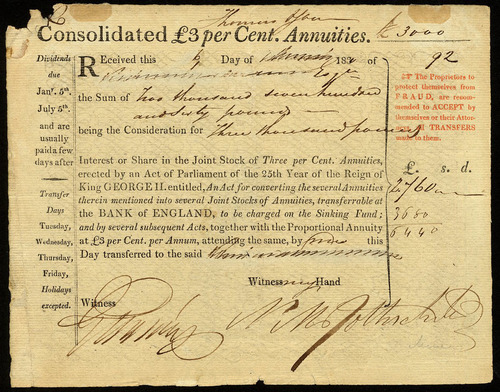 Consolidated £3 per Cent. Annuities. £ 3000
Dividends
due
Jany. 5th.
July 5th.
and are
usually
paid a few
days after
Transfer
Days
Tuesday,
Wednesday,
Thursday,
Friday,
Holidays
excepted.
Received this Day of 18 of
Esqr
the Sum of Two thousand seven hundred
and Sixty pounds
being the Consideration for Three thousand pounds
Interest or Share in the Joint Stock of Three per Cent. Annuities,
erected by an Act of Parliament of the 25th Year of the Reign of
King GEORGE II. entitled, An Act for converting the several Annuities
therein mentioned into several Joint Stocks of Annuities, transferrable at
the BANK of ENGLAND, to be charged on the Sinking Fund;
and by several subsequent Acts, together with the Proportional Annuity
at £3 per Cent. per Annum, attending the same, by this
Day transferred to the said
Witness my Hand
Witness
92
The Proprietors to
protect themselves from
FRAUD, are recom-
mended to ACCEPT by
themselves or their Attor-
all TRANSFERS
made to them.
£. s. d.
2760